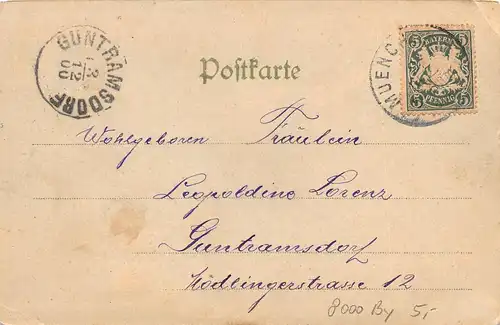 GUNTRAMSDORF
12
00
Postkarte
BAYERN
5 5
5 PFENNIG 5
MUENCH
Wohlgeboren Fräulein
Leopoldine Lorenz
Guntramsdorf
Mödlingerstrasse 12
8000 By 5,-